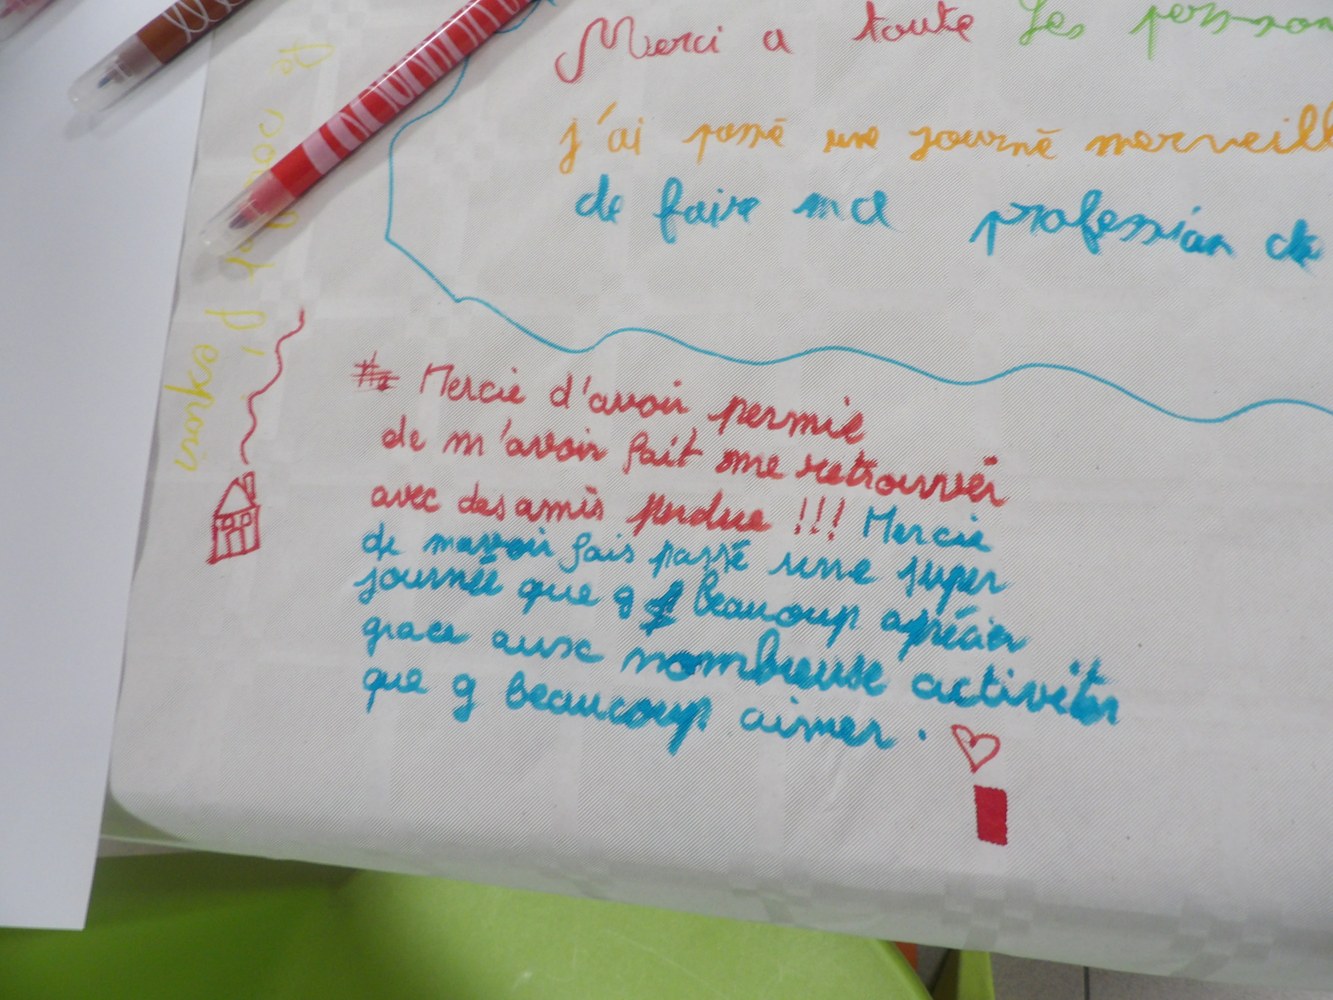 Merci a toute les
j'ai passé une journé
de faire ma profession de
Mercie d'avoir permie
de m'avoir fait me retrouvér
avec des amis perdue !!! Mercie
de mavoir fais passé une super
journée que g beaucoup aprécier
grace aux nombreuse activités
que g beaucoup aimer.